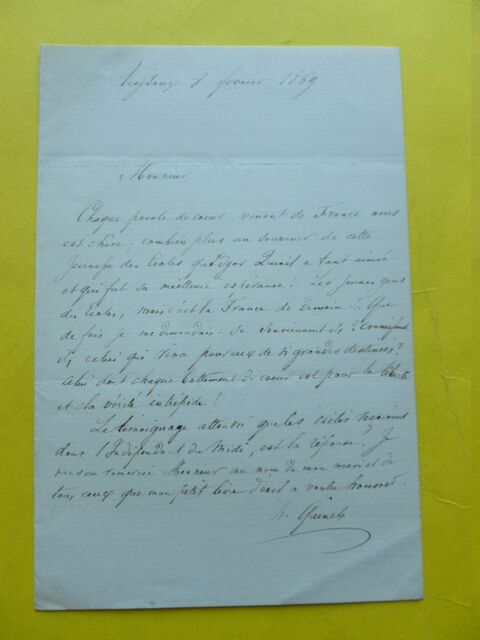 Veytaux 8 février 1869
Monsieur
Chaque parole de coeur, venant de France nous
est chère; combien plus un souvenir de cette
jeunesse des Ecoles qu'Edgar Quinet a tant aimée
et qui fut sa meilleure espérance! Les jeunes gens
des Ecoles, mais c'est la France de demain! Que
de fois je me demandais: Se souviennent-ils? Connaissent
ils celui qui rêva pour eux de si grandes destinées?
Celui dont chaque battement de coeur est pour la liberté
et la vérité intrépide!
Le témoignage attendri que les
dans l'Indépendant du Midi, est la réponse. Je
vous en remercie Monsieur au nom de mon mari et de
tous ceux que mon petit livre a voulu honorer
Quinet